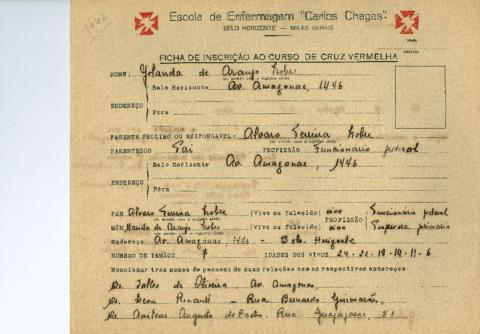 Escola de Enfermagem "Carlos Chagas"
BELO HORIZONTE — MINAS GERAIS
FICHA DE INSCRIÇÃO AO CURSO DE CRUZ VERMELHA
NOME: Yolanda de Araujo Nobre
Belo Horizonte Av. Amazonas, 1446
ENDEREÇO
Fora
PARENTE PROXIMO OU RESPONSAVEL: Alvaro Nobre
PARENTESCO Pai PROFISSÃO Funcionario federal
Belo Horizonte Av. Amazonas, 1446
ENDEREÇO
Fora
PAI Alvaro Nobre (Vivo ou falecido) vivo Funcionário federal
PROFISSÃO
MÃE de Araujo Nobre (Vivo ou falecido) viva
Endereço Av. Amazonas, 1446 - Belo Horizonte
NUMERO DE IRMÃOS IDADES DOS VIVOS 24-21-18-14-11-6
Mencionar tres nomes de pessoas de suas relações com os respectivos endereços
Dr. de Oliveira Av. Amazonas,
Dr. Rua Bernardo Guimarães,
Dr. Augusto de Castro, Rua 51